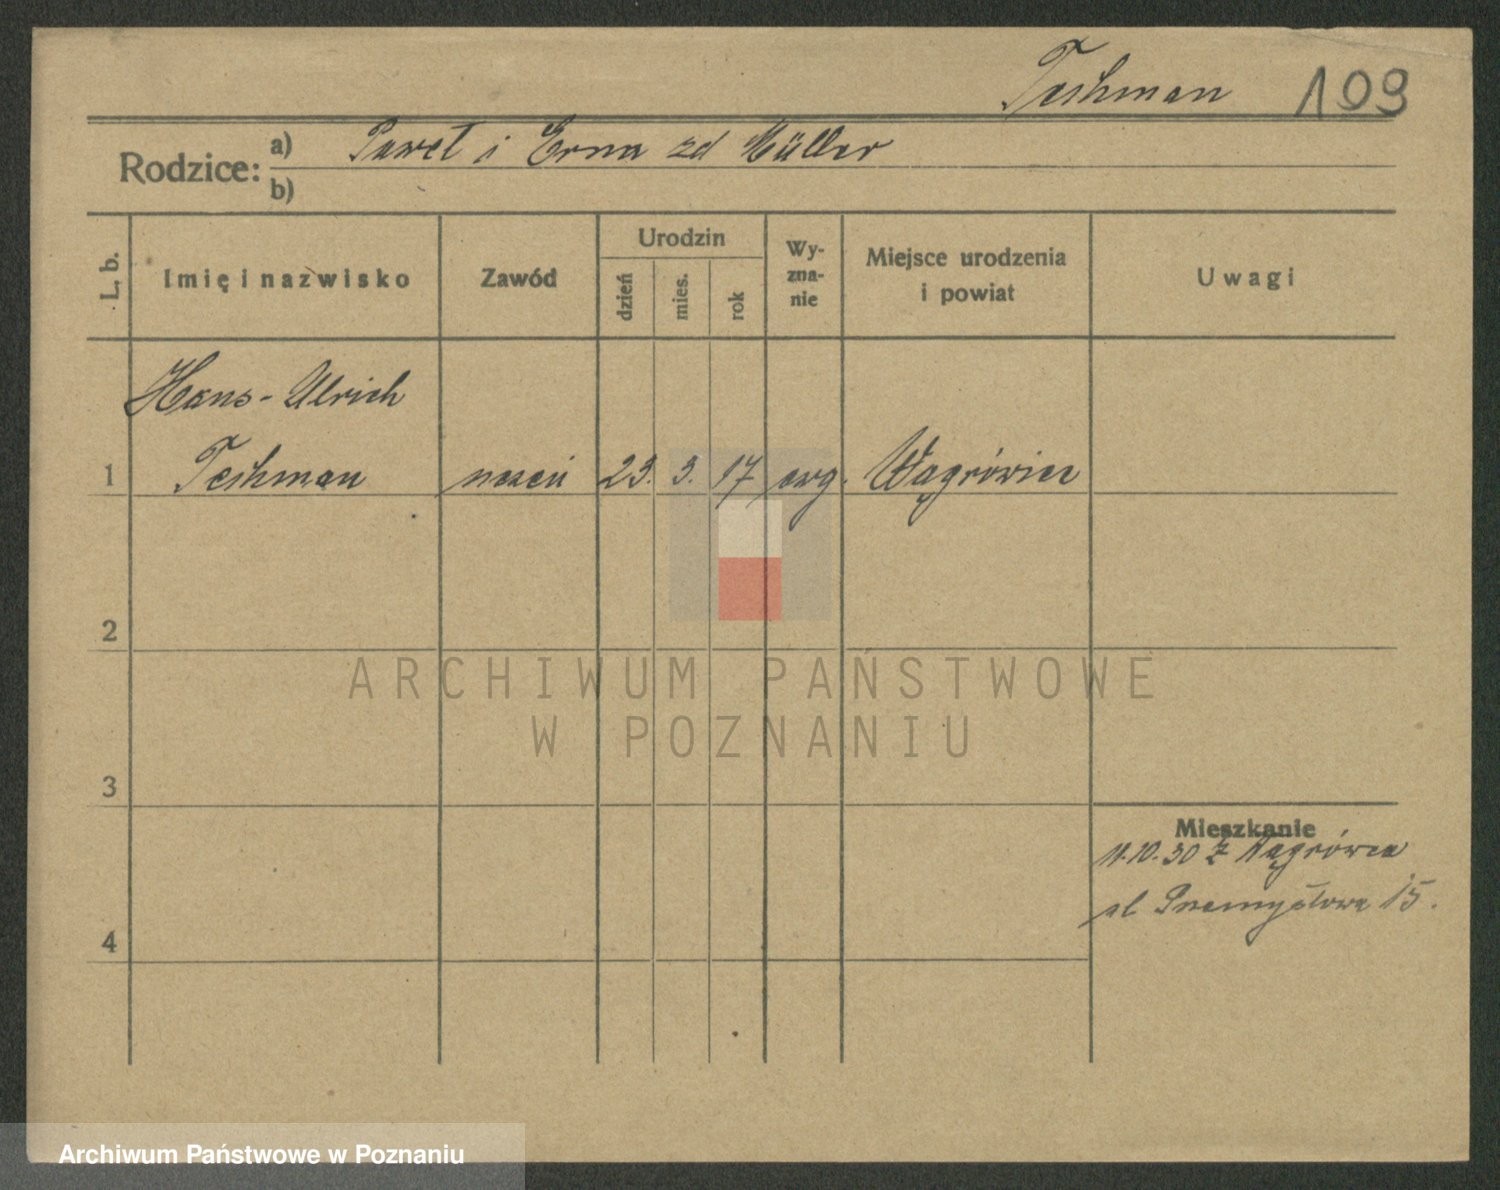 Teshman 109
Rodzice: a) Paweł i Erna zd Müller
b)
L. b.
Imię i nazwisko
Zawód
Urodzin
dzień
mies.
rok
Wy-
zna-
nie
Miejsce urodzenia
i powiat
Uwagi
Hans-Ulrich
1 Teshman uczeń 23. 3. 17 ewg. Wągrówiec
2
3
4
Mieszkanie
11.10.30 z Wągrówca
ul Przemysłowa 15.
ARCHIWUM PAŃSTWOWE
W POZNANIU
Archiwum Państwowe w Poznaniu